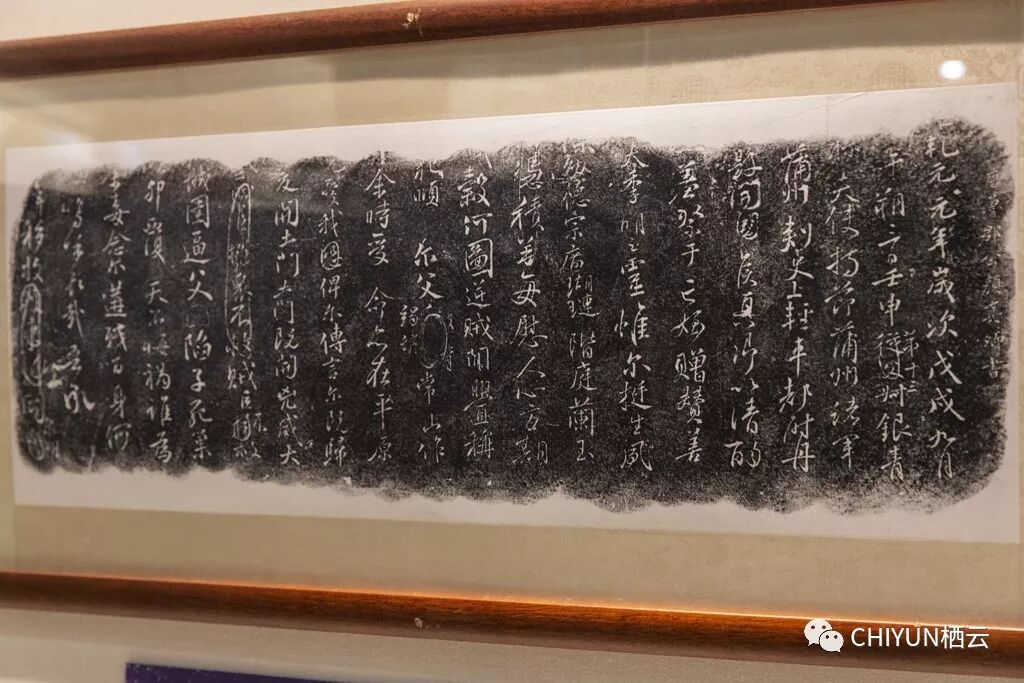 乾元元年歲次戊戌九月
午朔三日壬申從叔銀青
夫使持節蒲州諸軍
蒲州刺史上輕車都尉丹
縣開國侯真卿以清酌
羞祭于亡姪贈贊善
夫季明之靈惟尔挺生夙
德宗廟瑚璉階庭蘭玉
積善每慰人心方期
穀何圖逆賊開釁稱
犯順 尔父 常山作
余時受 命亦在平原
愛我俾尔傳言尔既歸
爰開土門土門既開兇威大
賊臣
城圍逼父陷子死巢
卵覆天不悔禍誰為
毒念尔遘殘百身何
嗚乎哀哉 吾承
移牧
CHIYUN栖云